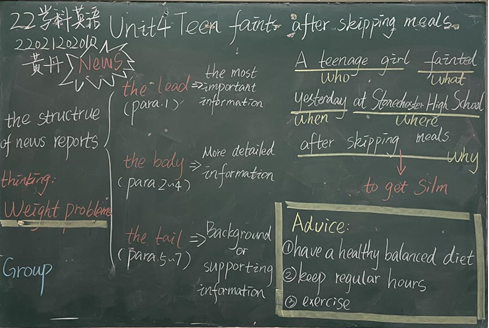 22学科英语
220212020102
黄丹
Unit4 Teen faints after skipping meals.
News
the structrue
of news reports
thinking:
Weight problem
Group
the lead
(para.1)
⇒ the most
important
information
the body
(para.2~4)
⇒ More detailed
information
the tail
(para.5~7)
⇒ Background
or
supporting
information
A teenage girl fainted
who what
yesterday at Stonechester High School
when where
after skipping meals
why
to get Silm
Advice:
①have a healthy balanced diet
②keep regular hours
③ exercise